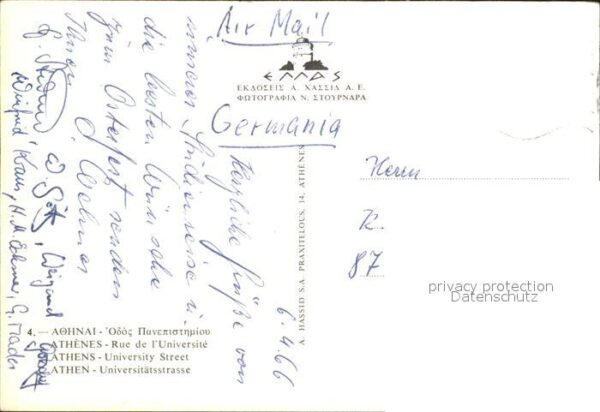 Air Mail
ΕΛΛΑΣ
ΕΚΔΟΣΕΙΣ Α. ΧΑΣΣΙΔ Α. Ε.
ΦΩΤΟΓΡΑΦΙΑ Ν. ΣΤΟΥΡΝΑΡΑ
Germania
Herrn
K.
87
privacy protection
Datenschutz
6.4.66
Herzliche Grüße von
unserer Studienreise u.
die besten Wünsche
zum Osterfest senden
Ihnen
W. Götz, Weigand
Winfrid Kraus, H.M.
A. HASSID S.A. PRAXITELOUS, 14, ATHÈNES
4. — ΑΘΗΝΑΙ - Ὁδὸς Πανεπιστημίου
ATHÈNES - Rue de l'Université
ATHENS - University Street
ATHEN - Universitätsstrasse